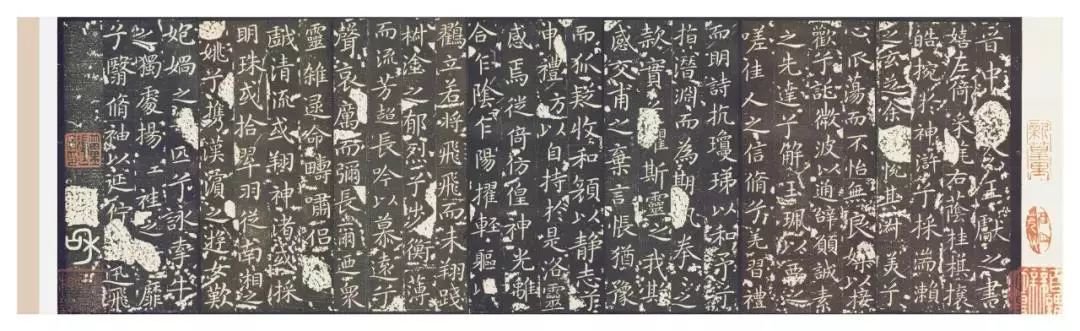 晉中令王獻之書
嬉左倚采旄右蔭桂旗攘
皓捥於神滸兮採湍瀨
之玄芝余悅其淑美兮
心振蕩而不怡無良媒以接
歡兮託微波以通辭願誠素
之先達兮解玉珮以要之
嗟佳人之信脩兮羌習禮
而明詩抗瓊珶以和予兮
指潛淵而為期執拳之
款實懼斯靈之我欺
感交甫之棄言悵猶豫
而狐疑收和顏以靜志兮
申禮防以自持於是洛靈
感焉徙倚仿偟神光離
合乍陰乍陽擢輕軀以
鶴立若將飛飛而未翔踐
椒塗之郁烈兮步衡薄
而流芳超長吟以慕遠兮
聲哀厲而彌長爾迺眾
靈雜遝命疇嘯侶
戲清流或翔神渚或採
明珠或拾翠羽從南湘之
姚兮攜漢濱之游女歎
匏媧之匹兮詠牽牛
之獨處揚袿之靡
兮翳脩袖以延佇迅飛